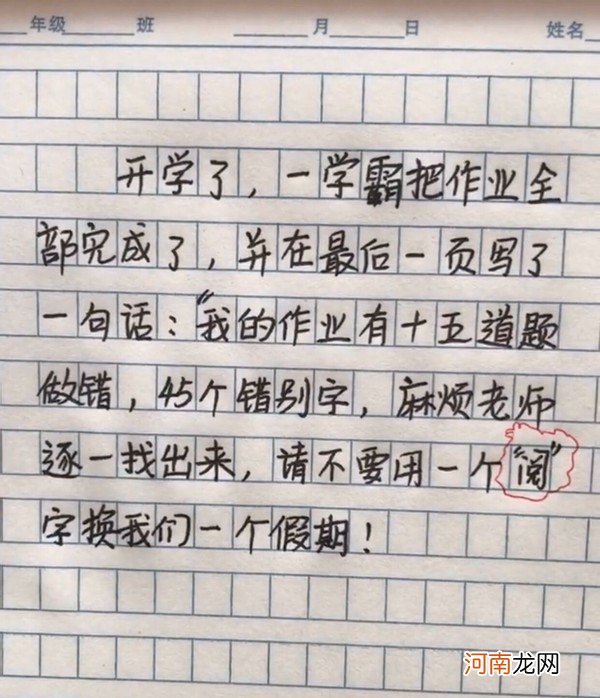 年级 班 月 日 姓名
开学了，一学霸把作业全
部完成了，并在最后一页写了
一句话：“我的作业有十五道题
做错，45个错别字，麻烦老师
逐一找出来，请不要用一个“阅”
字换我们一个假期！
河南龙网